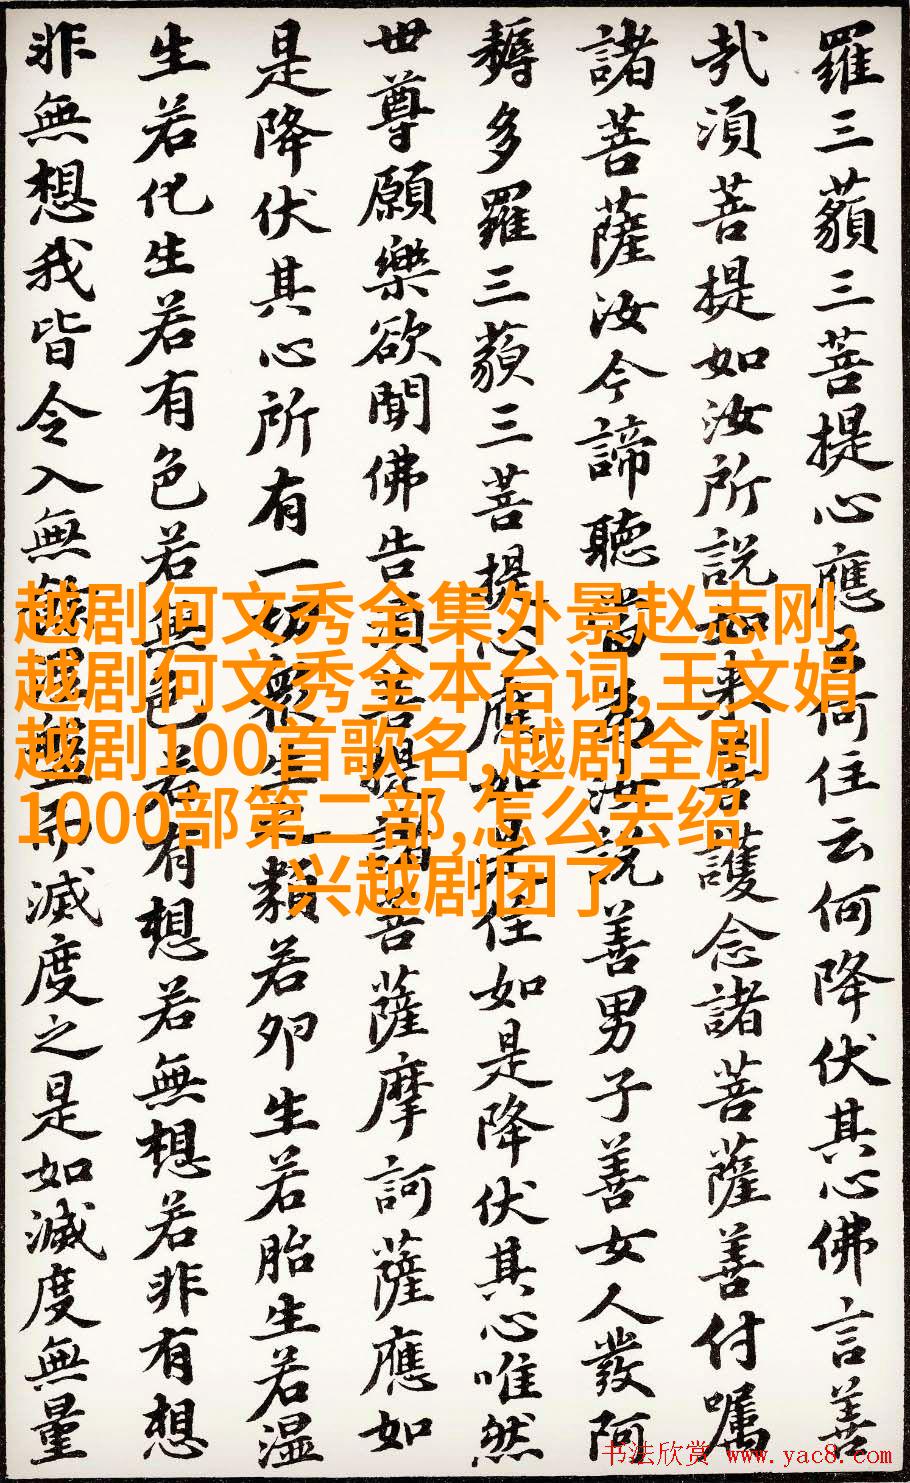 羅三藐三菩提心應云何住云何降伏其心佛言善
哉須菩提如汝所說如來善護念諸菩薩善付囑
諸菩薩汝今諦聽當為汝說善男子善女人發阿
耨多羅三藐三菩提心應如是住如是降伏其心唯然
世尊願樂欲聞佛告須菩提諸菩薩摩訶薩應如
是降伏其心所有一切眾生之類若卵生若胎生若溫
生若化生若有色若無色若有想若無想若非有想
非無想我皆令入無餘涅槃而滅度之是如滅度無量
越剧何文秀全集外景赵志刚,
越剧何文秀全本台词,王文娟
越剧100首歌名,越剧全剧
1000部第二部,怎么去绍
兴越剧团了
书法欣赏 www.yac8.com